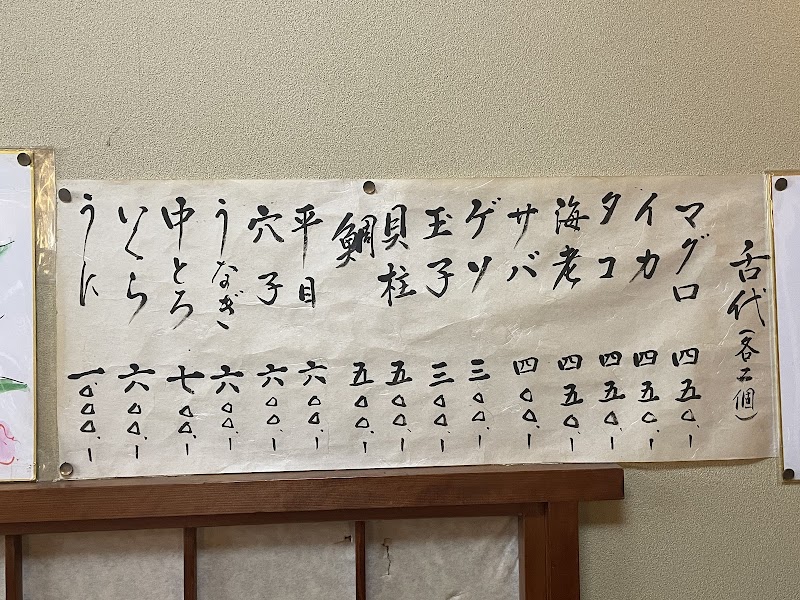 舌代(各二個)
マグロ 四五〇、ー
イカ 四五〇、ー
タコ 四五〇、ー
海老 四五〇、ー
サバ 四〇〇、ー
ゲソ 三〇〇、ー
玉子 三〇〇、ー
貝柱 五〇〇、ー
鯛 五〇〇、ー
平目 六〇〇、ー
穴子 六〇〇、ー
うなぎ 六〇〇、ー
中とろ 七〇〇、ー
いくら 六〇〇、ー
うに 一〇〇〇、ー